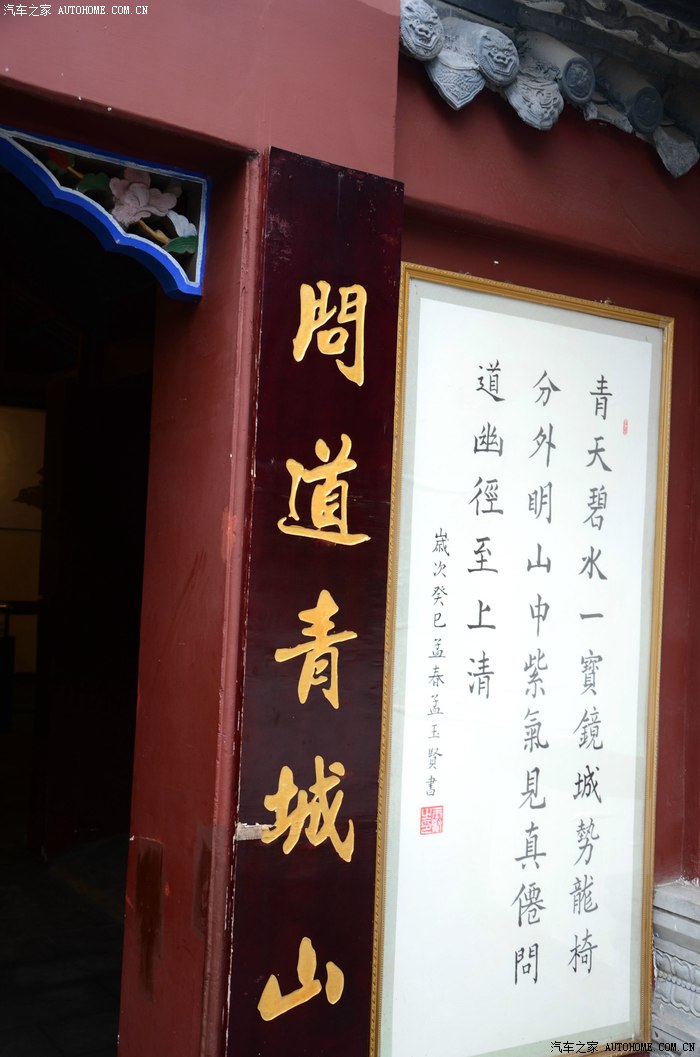 汽车之家 AUTOHOME.COM.CN
問道青城山
青天碧水一寶鏡城勢龍椅
分外明山中紫氣見真僊問
道幽徑至上清
歲次癸巳孟春孟玉賢書
汽车之家 AUTOHOME.COM.CN